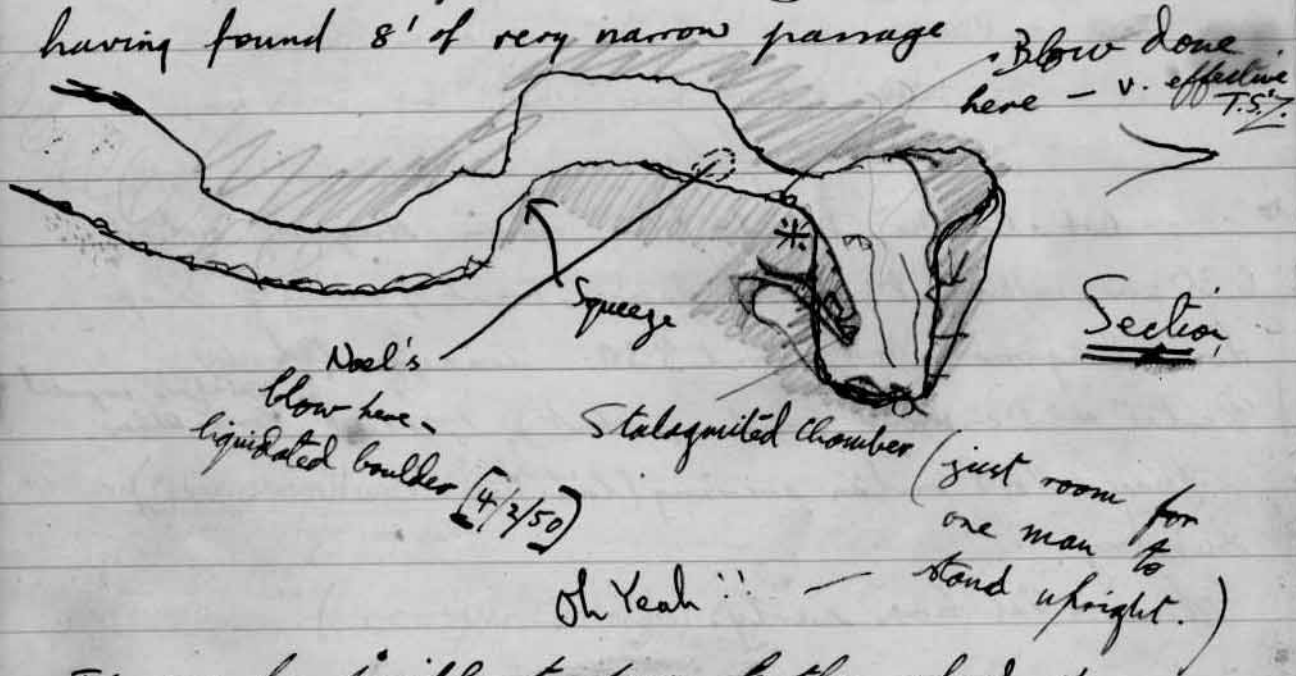 having found 8' of very narrow passage
Blow done
here - v. effective
T.S.Z.
Squeeze
Section
Noel's
blow here -
liquidated boulder [4/2/50]
Stalagmited Chamber (just room for
one man to
stand upright.)
Oh Yeah !! -